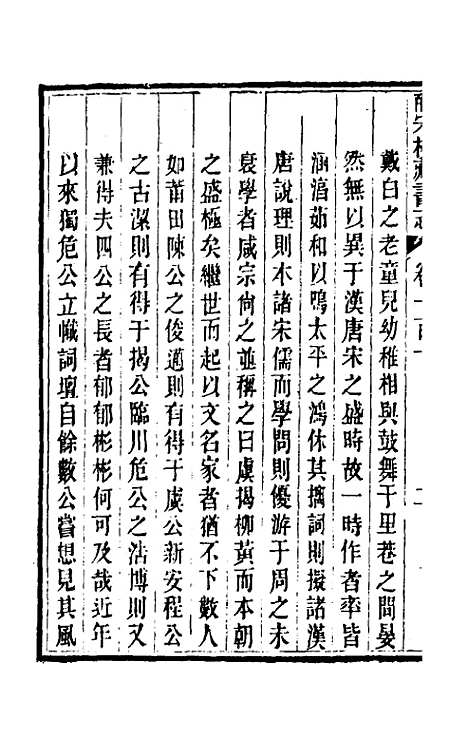 皕宋樓藏書志 卷一百
戴白之老童兒幼稚相與鼓舞于里巷之間晏
然無以異于漢唐宋之盛時故一時作者率皆
涵淯茹和以鳴太平之鴻休其摛詞則擬諸漢
唐說理則本諸宋儒而學問則優游于周之未
衰學者咸宗尙之並稱之曰虞揭柳黃而本朝
之盛極矣繼世而起以文名家者猶不下數人
如莆田陳公之俊邁則有得于虞公新安程公
之古潔則有得于揭公臨川危公之浩博則又
兼得夫四公之長者郁郁彬彬何可及哉近年
以來獨危公立幟詞壇自餘數公嘗想見其風